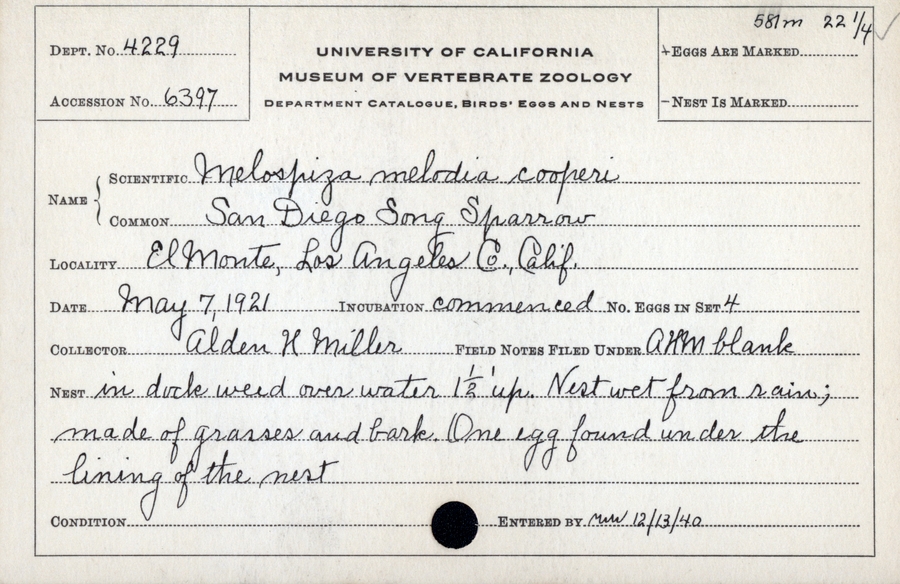 581m 22 1/4
DEPT. No. 4229
UNIVERSITY OF CALIFORNIA
+EGGS ARE MARKED
MUSEUM OF VERTEBRATE ZOOLOGY
ACCESSION No. 6397
DEPARTMENT CATALOGUE, BIRDS' EGGS AND NESTS
-NEST IS MARKED
NAME
SCIENTIFIC Melospiza melodia cooperi
COMMON San Diego Song Sparrow
LOCALITY El Monte, Los Angeles Co., Calif.
DATE May 7, 1921 INCUBATION commenced No. EGGS IN SET 4
COLLECTOR Alden H Miller FIELD NOTES FILED UNDER AHM blank
NEST in dock weed over water 1½' up. Nest wet from rain;
made of grasses and bark. One egg found under the
lining of the nest
CONDITION ENTERED BY 12/13/40